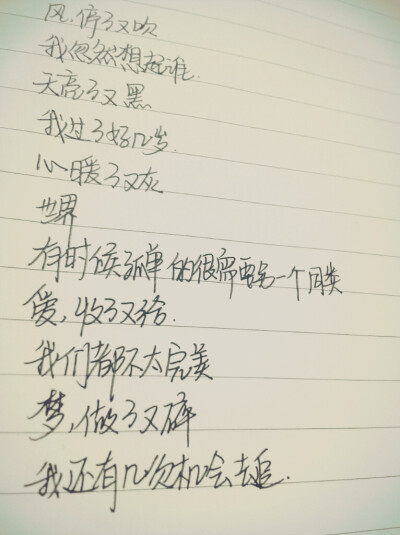 风,停了又吹
我忽然想起谁.
天亮了又黑
我过了好几岁.
心暖了又灰
世界
有时候孤单的很需要另一个同类
爱,收了又给.
我们都不太完美
梦,做了又碎
我还有几次机会去追.